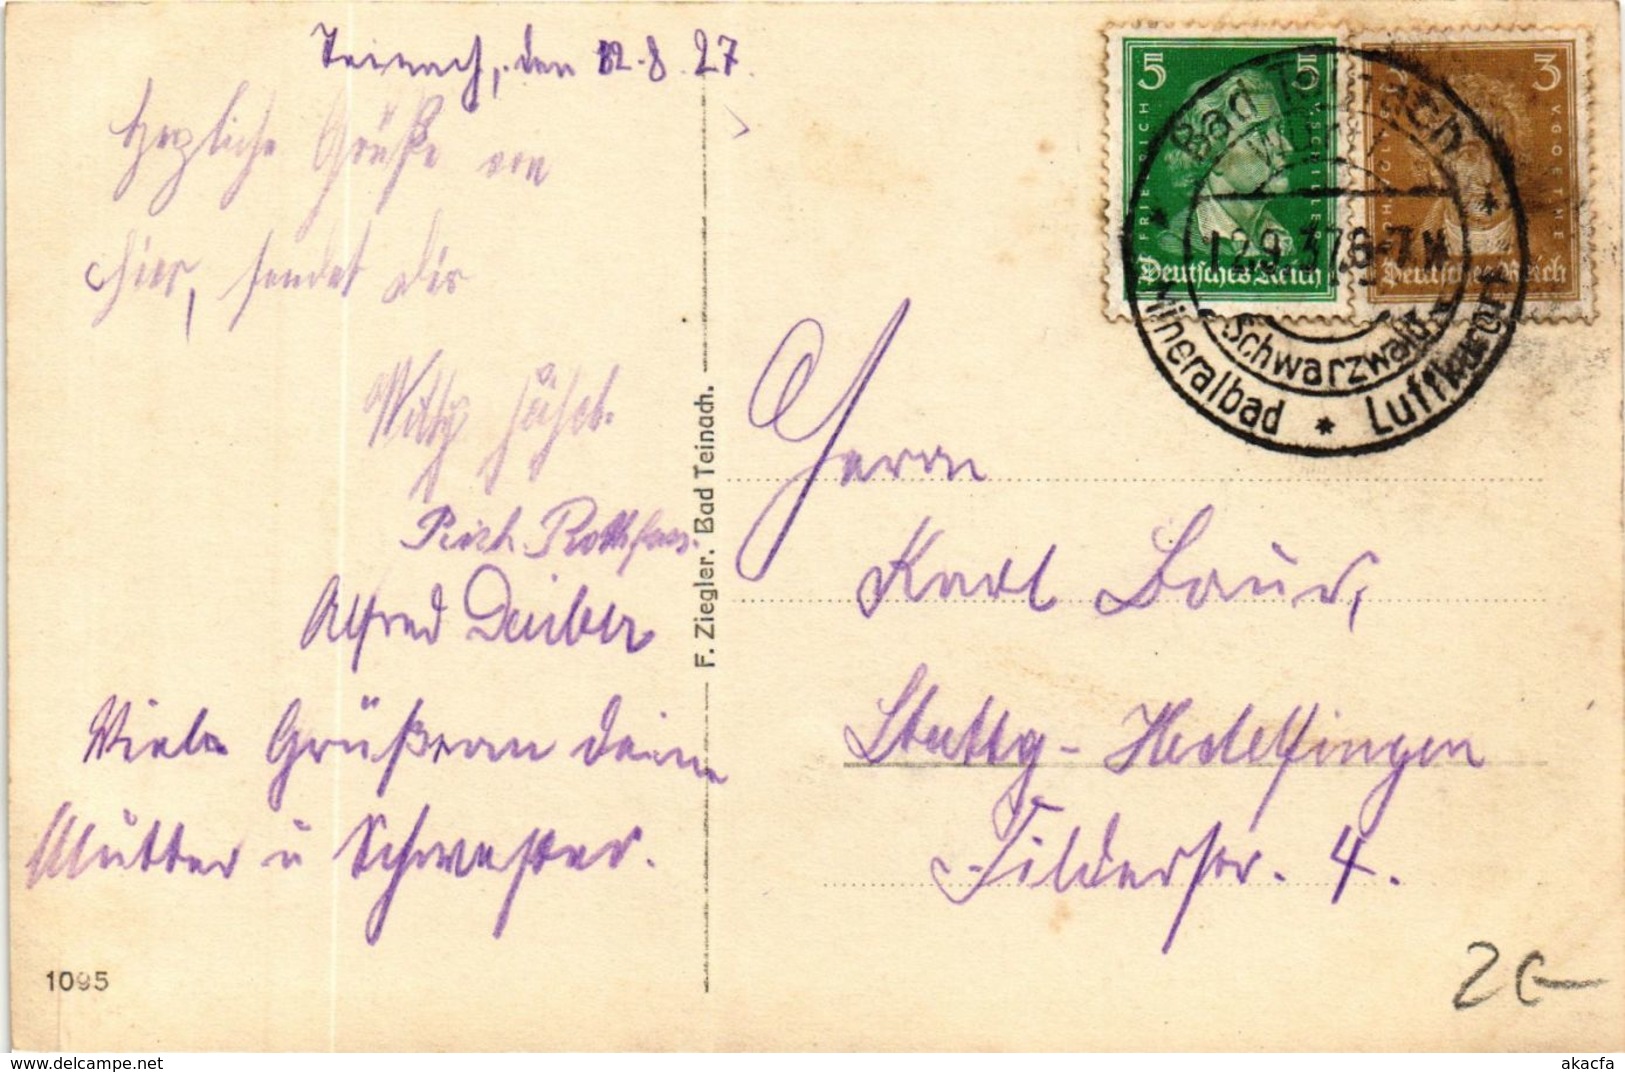 Teinach, den 12.8.27.
Herzliche Grüße von
hier, sendet dir
Willy
Rich. Rothfuss.
Alfred Daiber
Viele Grüße von deine
Mutter u Schwester.
1095
F. Ziegler. Bad Teinach.
5 5
FRIEDRICH V. SCHILLER
Deutsches Reich
3
V. GOETHE
Deutsches Reich
Bad Teinach
12.9.37.6-7 N
Schwarzwald
Mineralbad * Luftkurort
Herrn
Karl Baur,
Stuttg-Hedelfingen
Filderstr. 4.
akacfa